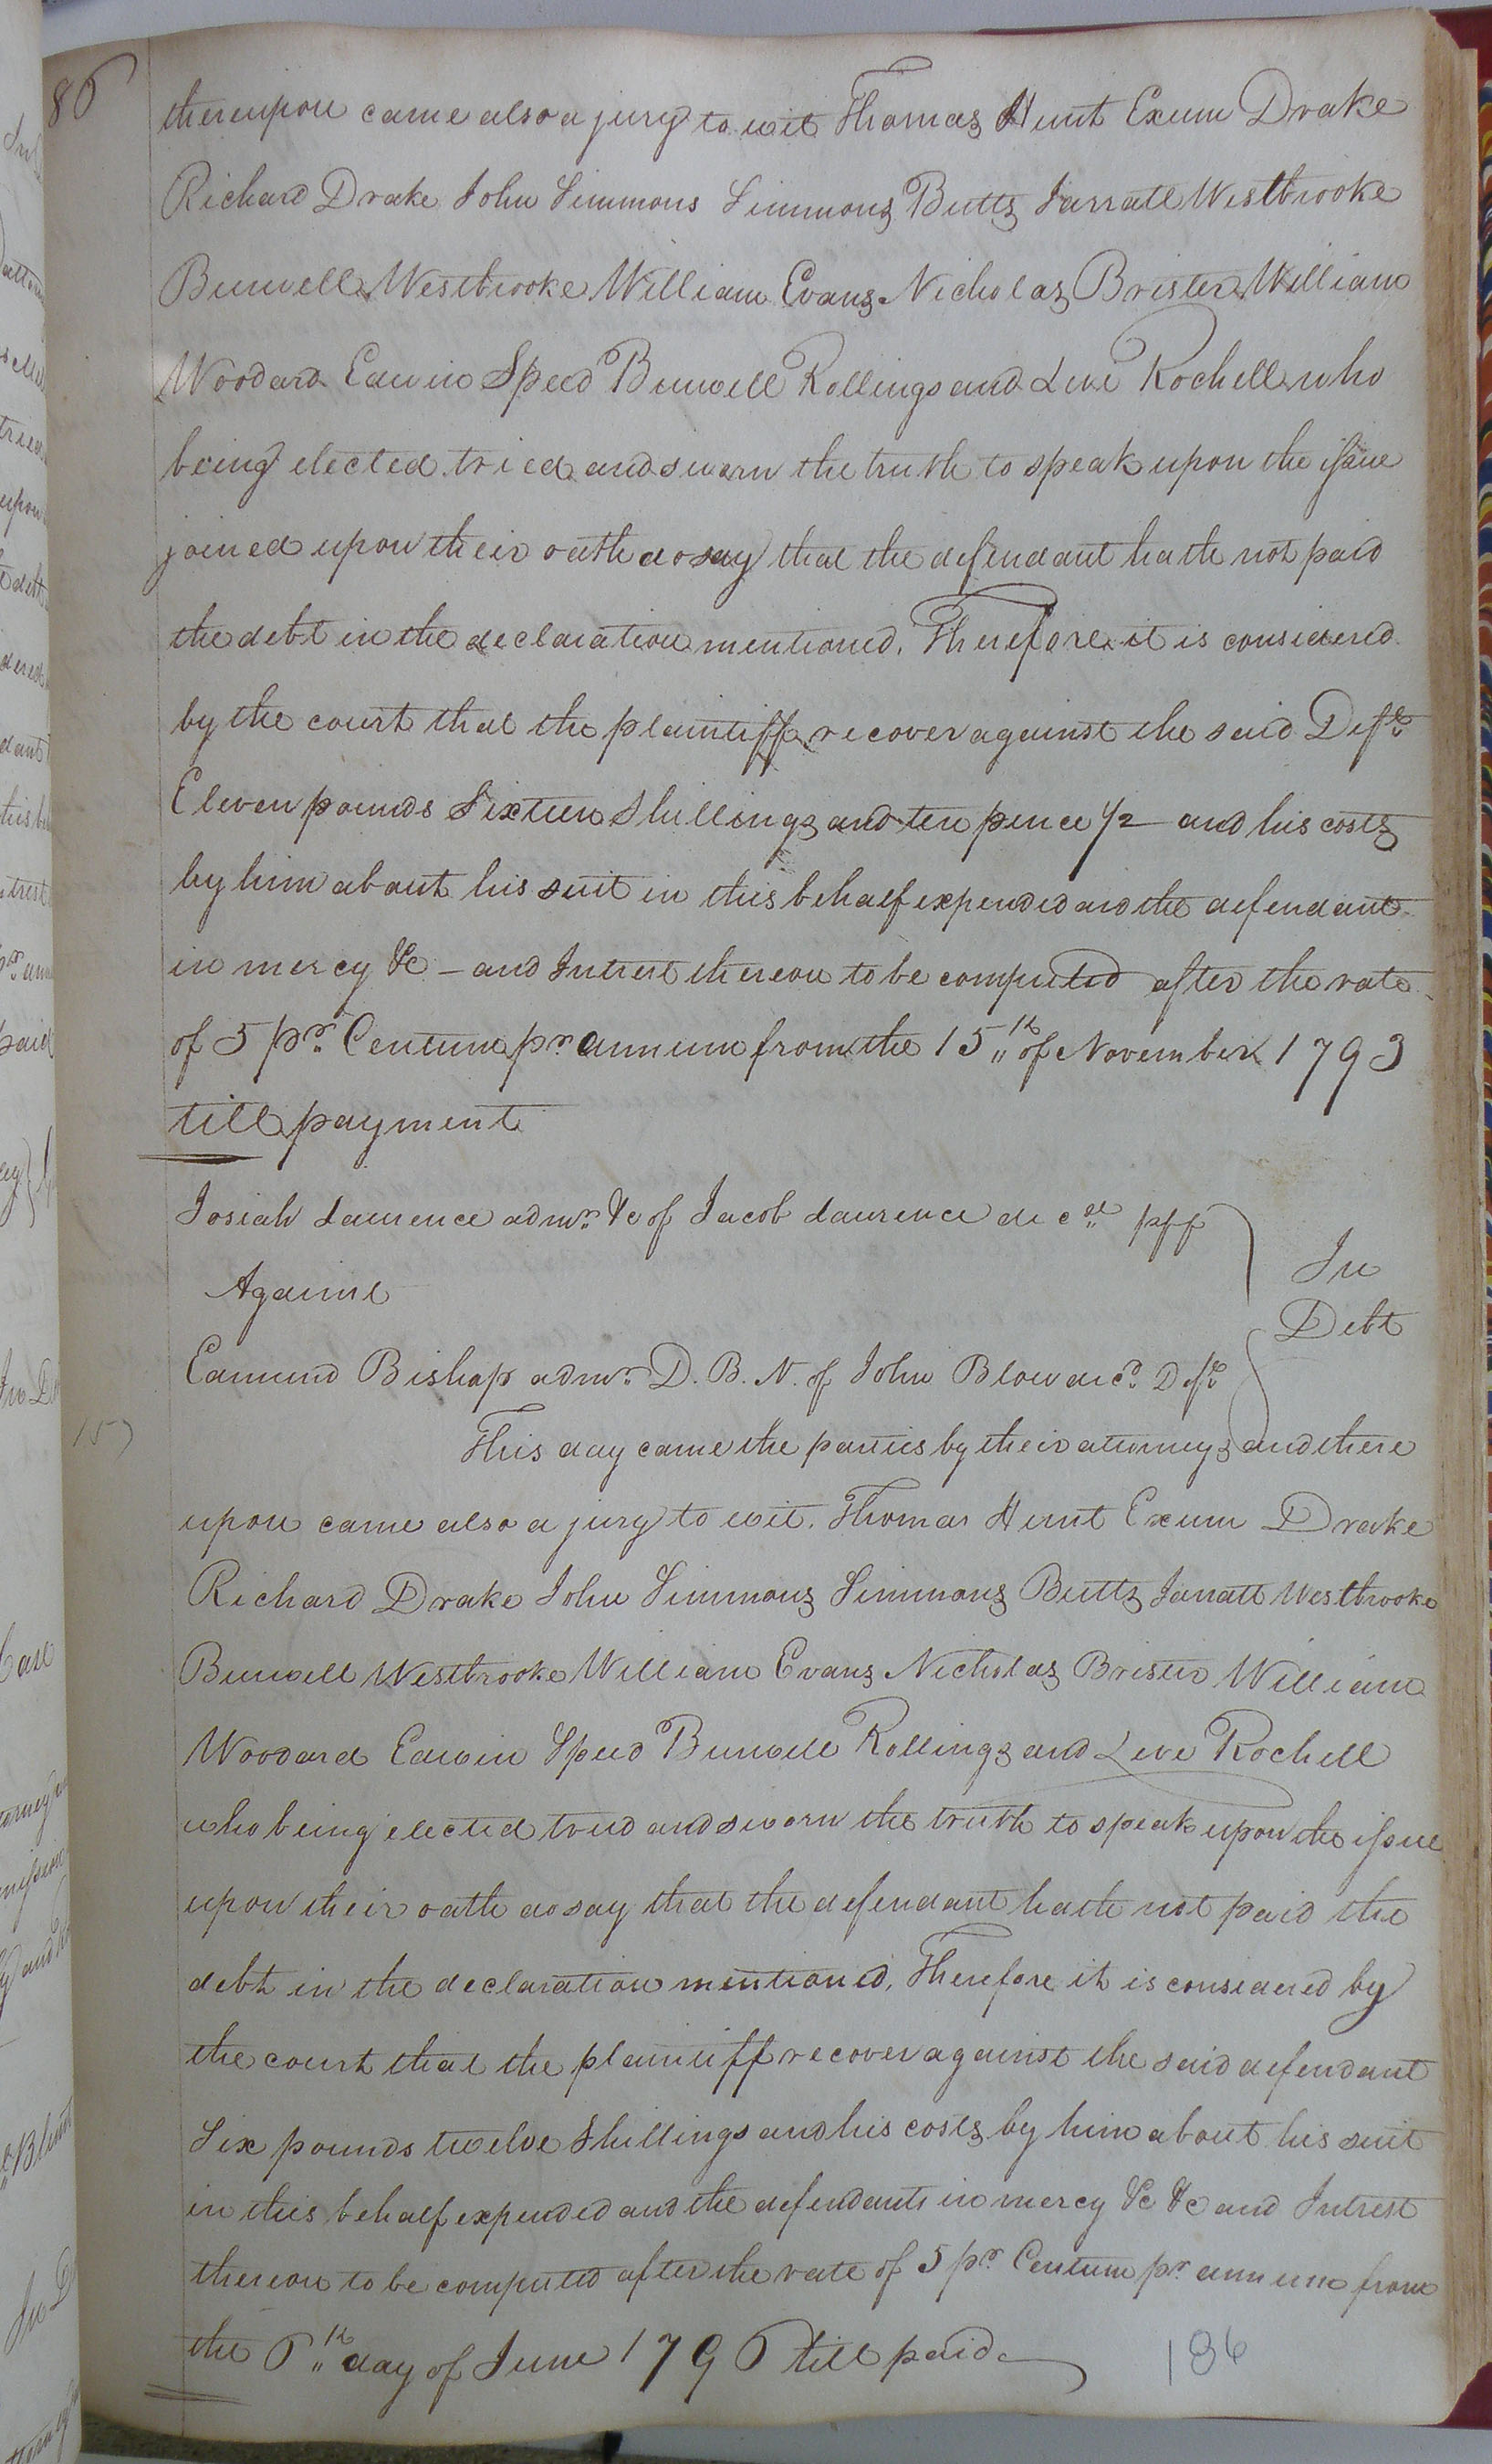 86
thereupon came also a jury to wit Thomas Hunt Exum Drake
Richard Drake John Simmons Simmons Butts Jarratt Westbrooke
Burwell Westbrooke William Evans Nicholas Brister William
Woodard Edwin Speed Burwell Rollings and Levi Rochell who
being elected tried and sworn the truth to speak upon the issue
joined upon their oath do say that the defendant hath not paid
the debt in the declaration mentioned. Therefore it is considered
by the court that the plaintiff recover against the said Deft
Eleven pounds Sixteen Shillings and ten pence 1/2 — and his costs
by him about his suit in this behalf expended and the defendant
in mercy &c — and Intrest thereon to be computed after the rate
of 5 pr. Centum pr annum from the 15th of November 1793
till payment
Josiah Laurence admr. &c of Jacob Laurence decd pff
In
Against
Debt
Edmund Bishop admr. D. B. N. of John Blow decd. Deft
This day came the parties by their attorneys and there
upon came also a jury to wit. Thomas Hunt Exum Drake
Richard Drake John Simmons Simmons Butts Jarratt Westbrooke
Burwell Westbrooke William Evans Nicholas Brister William
Woodard Edwin Speed Burwell Rollings and Levi Rochell
who being elected tried and sworn the truth to speak upon the issue
upon their oath do say that the defendant hath not paid the
debt in the declaration mentioned. Therefore it is considered by
the court that the plaintiff recover against the said defendant
Six pounds twelve Shillings and his costs by him about his suit
in this behalf expended and the defendants in mercy &c &c and Intrest
thereon to be computed after the rate of 5 pr. Centum pr. annum from
the 6th day of June 1796 till paid
186